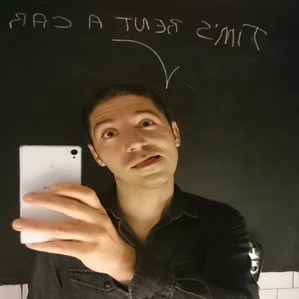 TIM'S RENT A CAR